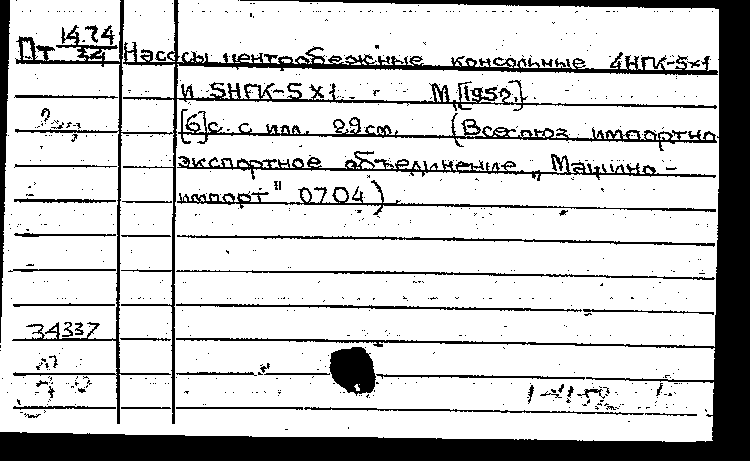 Пт 14.74/34 Насосы центробежные консольные 4НГК-5×1
и 5НГК-5×1. М, [1952]
[6]с. с илл. 29см. (Всесоюз импортно
экспортное объединение „Машино-
импорт" 0704)
34337